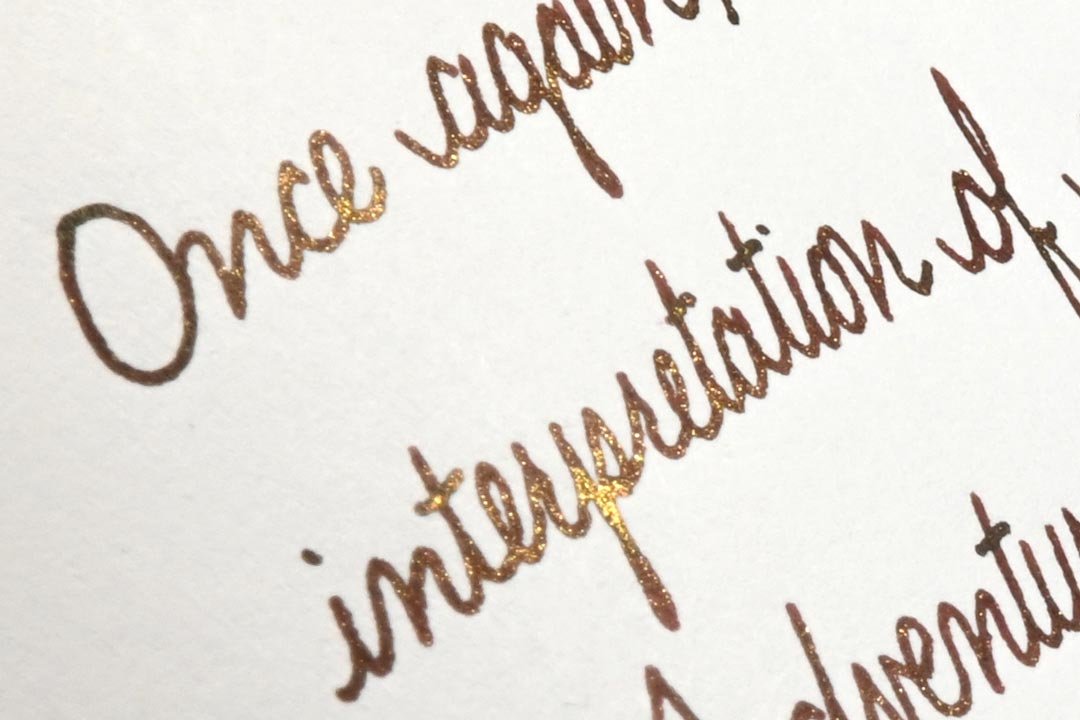 Once again,
interpretation of
Adventu